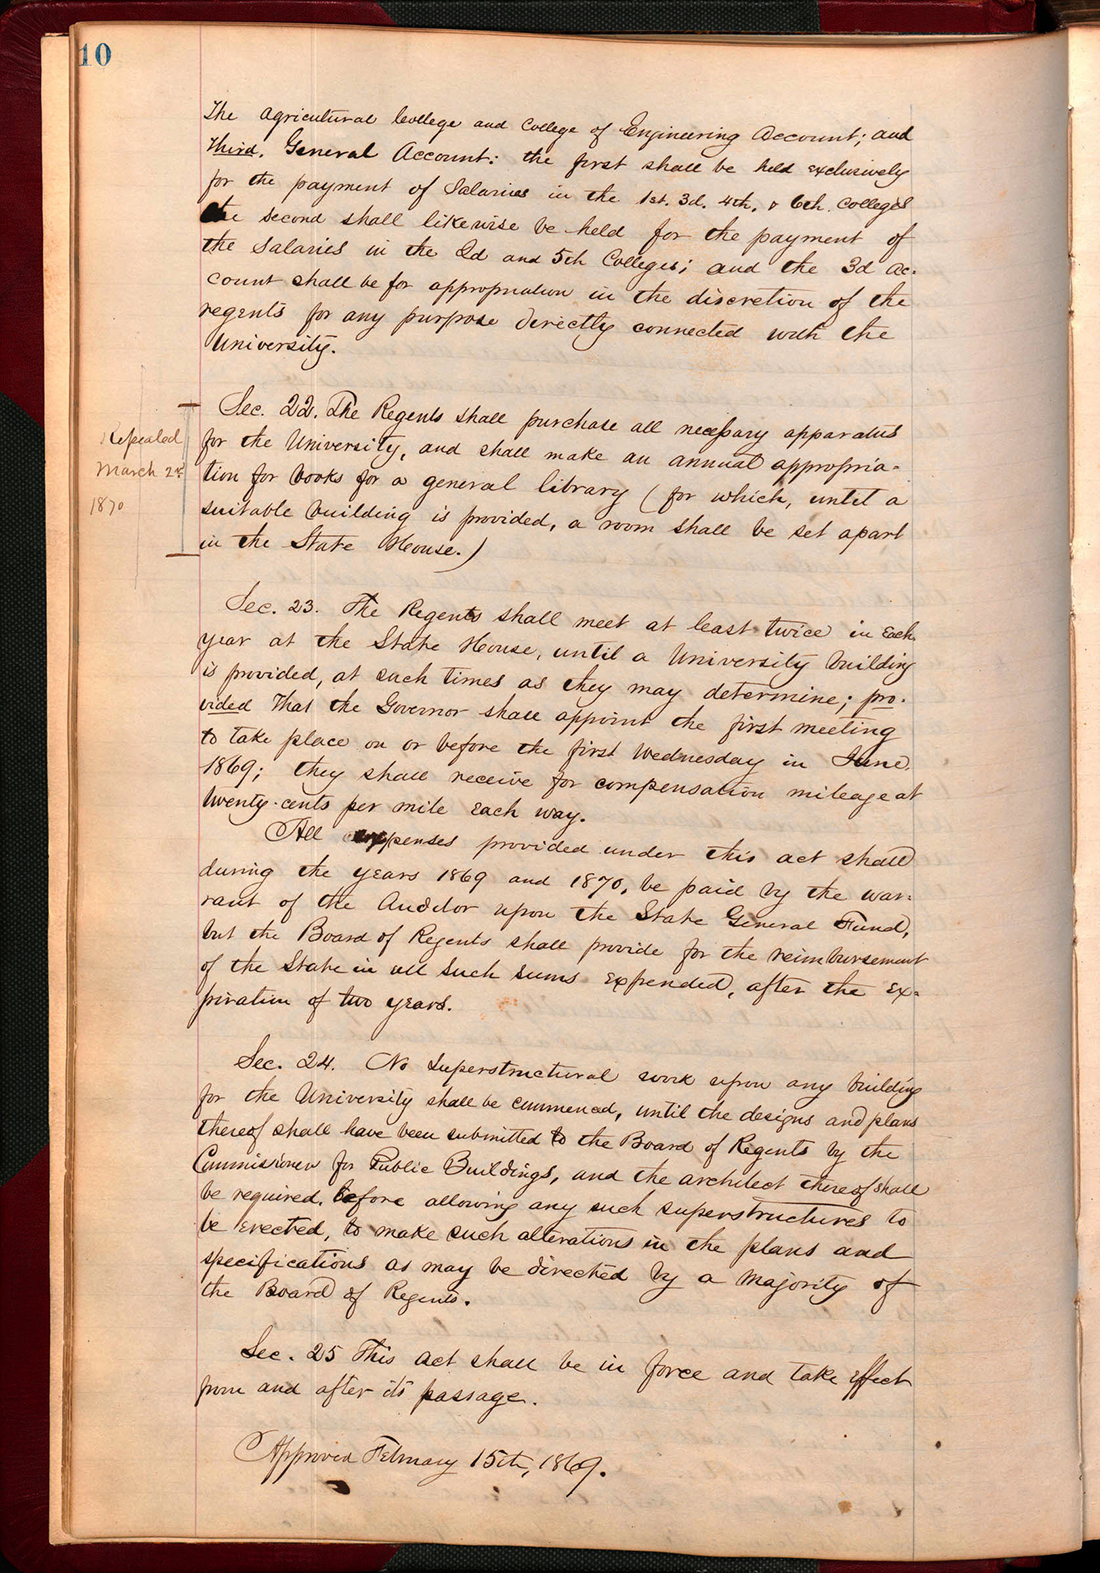 10
The Agricultural College and College of Engineering Account; and
Third. General Account: the first shall be held exclusively
for the payment of Salaries in the 1st. 3d. 4th. & 6th. Colleges
the second shall likewise be held for the payment of
the Salaries in the 2d and 5th Colleges; and the 3d Ac-
count shall be for appropriation in the discretion of the
regents for any purpose directly connected with the
University.
Sec. 22. The Regents shall purchase all necessary apparatus
for the University, and shall make an annual appropria-
tion for books for a general library (for which, until a
suitable building is provided, a room shall be set apart
in the State House.)
Repealed
March 2d
1870
Sec. 23. The Regents shall meet at least twice in Each
year at the State House, until a University building
is provided, at such times as they may determine; pro-
vided That the Governor shall appoint the first meeting
to take place on or before the first Wednesday in June
1869; they shall receive for compensation mileage at
twenty-cents per mile Each way.
All expenses provided under this act shall
during the years 1869 and 1870, be paid by the war-
rant of the Auditor upon the State General Fund,
but the Board of Regents shall provide for the reimbursement
of the State in all such sums expended, after the Ex-
piration of two years.
Sec. 24. No Superstructural work upon any building
for the University shall be commenced, until the designs and plans
thereof shall have been submitted to the Board of Regents by the
Commissioner for Public Buildings, and the architect thereof shall
be required, before allowing any such superstructures to
be Erected, to make such alterations in the plans and
specifications as may be directed by a Majority of
the Board of Regents.
Sec. 25 This act shall be in force and take effect
from and after its passage.
Approved February 15th, 1869.